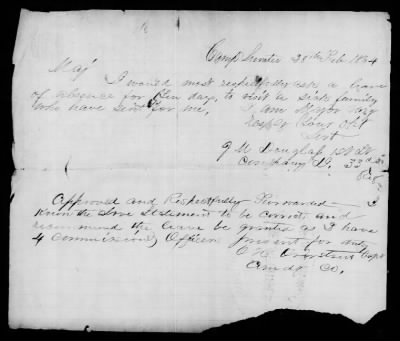 Camp Sumter 28th Feb 1864
Maj
I would most respectfully ask a leave
of absence for Ten days, to visit a sick family
who have sent for me.
I am Major very
Respy Your Obt
Svt
J M Douglas 1st Lt
Company D. 33d
Approved and Respectfully Forwarded — I
know the above statement to be correct and
recommend the leave be granted as I have
4 Commissioned Officers present for duty
Capt
Comdg Co.